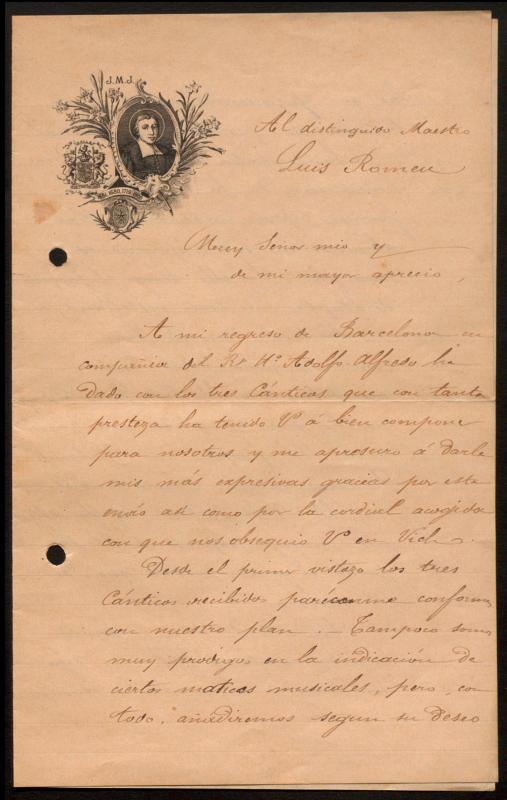 J.M.J.
Al distinguido Maestro
Luis Romeu
Muy Señor mio y
de mi mayor aprecio,
A mi regreso de Barcelona en
compañia del Rº Hº Adolfo-Alfredo he
dado con los tres Cánticos que con tanta
presteza ha tenido Vº á bien componer
para nosotros y me apresuro á darle
mis más expresivas gracias por este
envio asi como por la cordial acogida
con que nos obsequio Vº en Vich.
Desde el primer vistazo los tres
Cánticos recibidos parécenme conformes
con nuestro plan. – Tampoco somos
muy prodigos en la indicación de
ciertos matices musicales, pero, con
todo, añadiremos segun su deseo